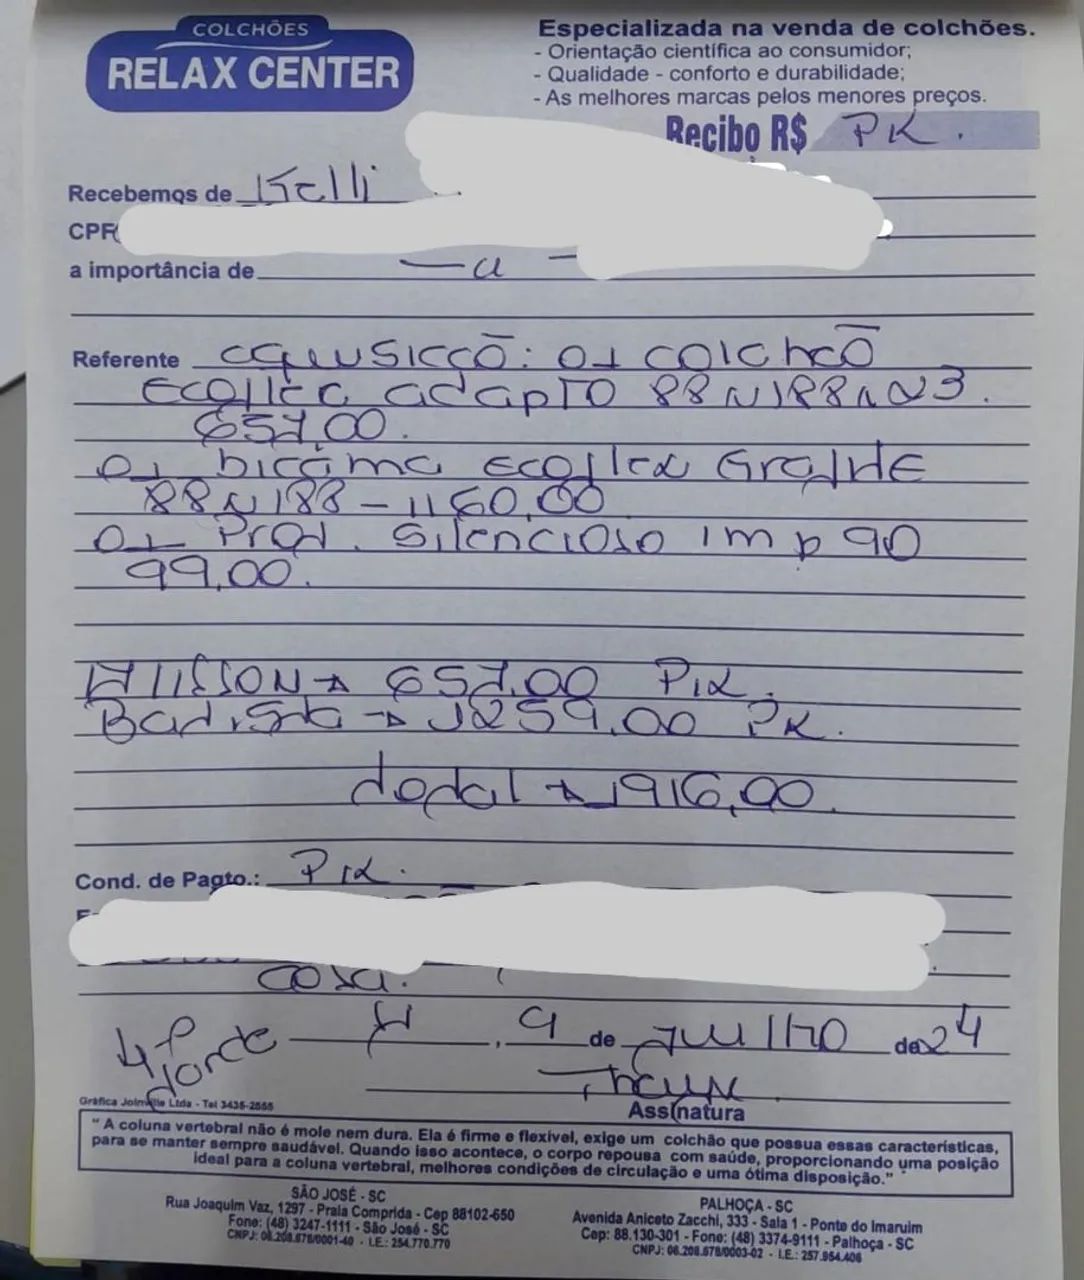 COLCHÕES
RELAX CENTER
Especializada na venda de colchões.
- Orientação científica ao consumidor;
- Qualidade - conforto e durabilidade;
- As melhores marcas pelos menores preços.
Recibo R$ PK.
Recebemos de Kelli
CPF
a importância de
Referente aquisicçõ: 01 colchão
Ecoflex adapto 88x188x23.
657,00.
01 bicama Ecoflex Grande
88x188 - 1160,00
01 Prot. Silencioso imp 90
99,00.
Alisson → 657,00 Pix.
Batista → 1259,00 PK.
total → 1916,00.
Cond. de Pagto.: Pix.
casa.
, 9 de Julho de 24
Assinatura
Gráfica Joinville Ltda - Tel 3435-2555
" A coluna vertebral não é mole nem dura. Ela é firme e flexível, exige um colchão que possua essas características,
para se manter sempre saudável. Quando isso acontece, o corpo repousa com saúde, proporcionando uma posição
ideal para a coluna vertebral, melhores condições de circulação e uma ótima disposição."
SÃO JOSÉ - SC
Rua Joaquim Vaz, 1297 - Praia Comprida - Cep 88102-650
Fone: (48) 3247-1111 - São José - SC
CNPJ: 06.208.678/0001-40 - I.E.: 254.770.770
PALHOÇA - SC
Avenida Aniceto Zacchi, 333 - Sala 1 - Ponte do Imaruim
Cep: 88.130-301 - Fone: (48) 3374-9111 - Palhoça - SC
CNPJ: 06.208.678/0003-02 - I.E.: 257.954.406